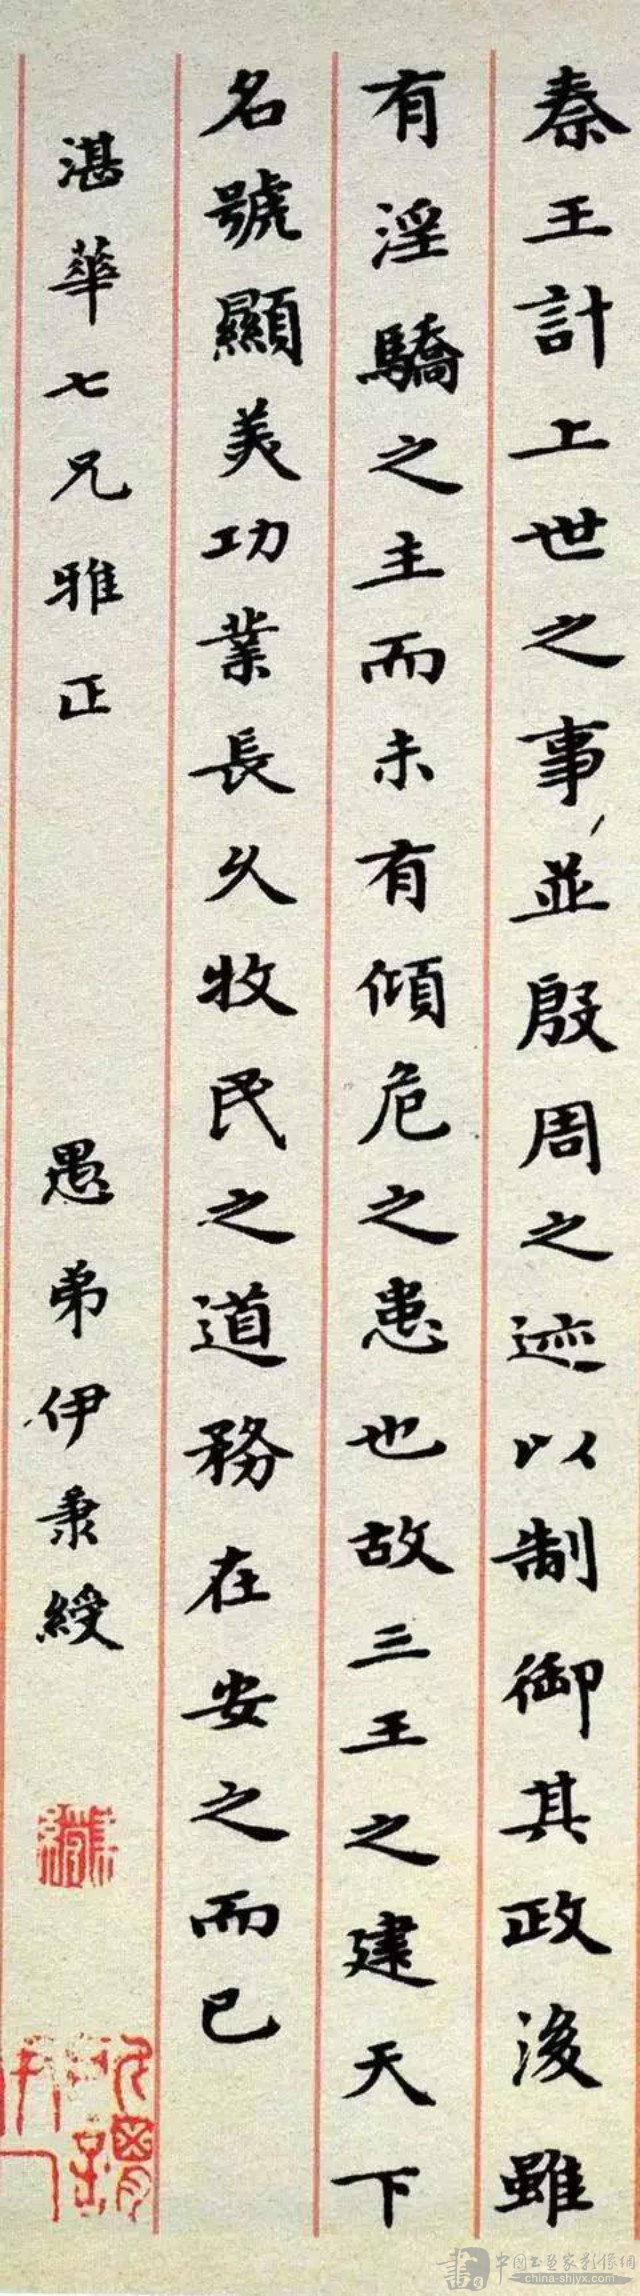 秦王計上世之事並殷周之迹以制御其政後雖
有淫驕之主而未有傾危之患也故三王之建天下
名號顯美功業長久牧民之道務在安之而已
湛華七兄雅正
愚弟伊秉綬
中国书画家影像網
china-shjyx.com